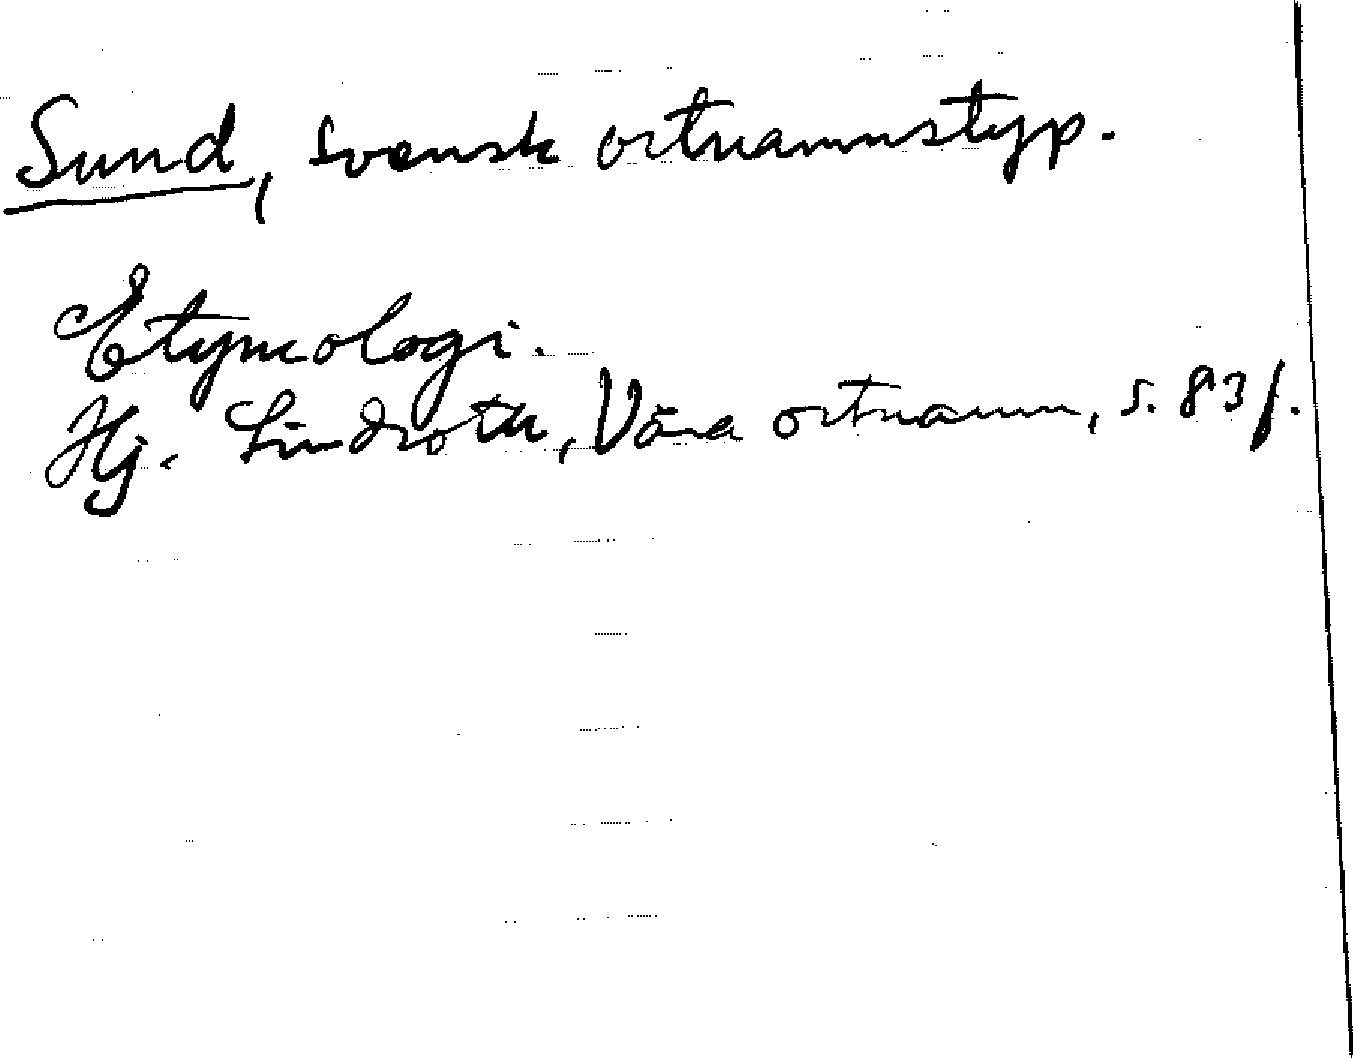 Sund, svensk ortnamnstyp.
Etymologi.
Hj. Lindroth, Våra ortnamn, s. 83 f.